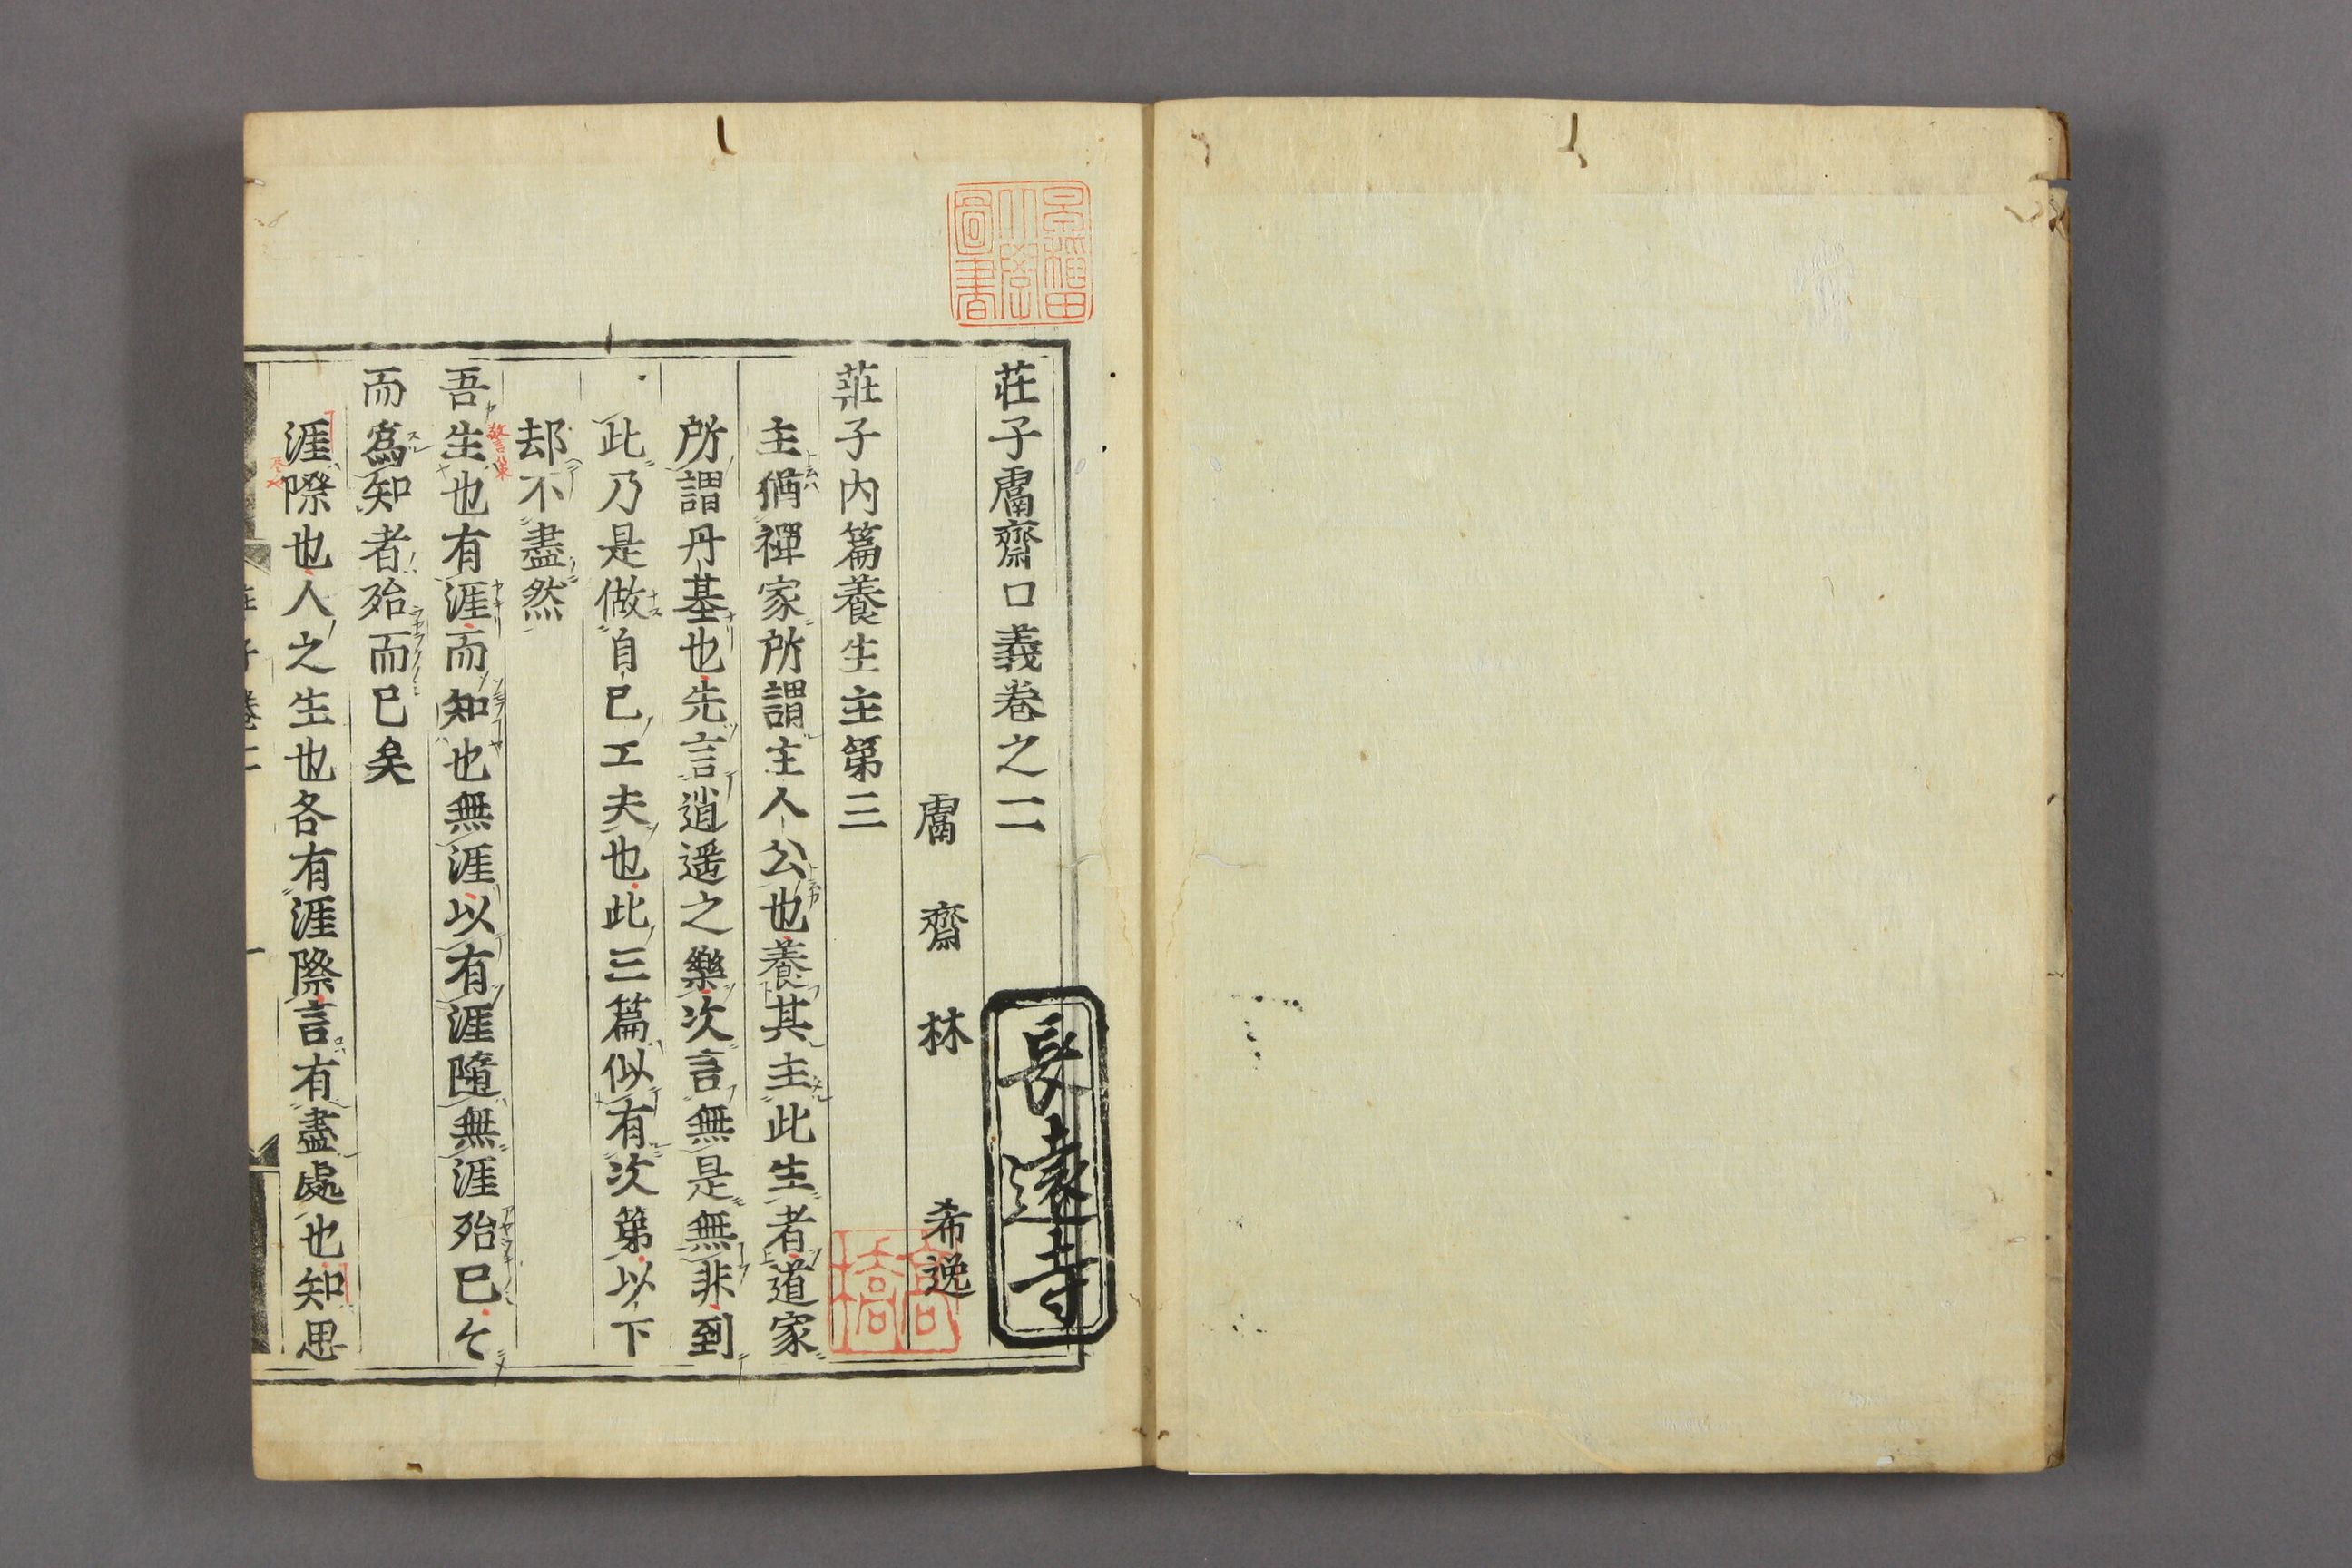 莊子鬳齋口義卷之二
鬳齋林 希逸
莊子內篇養生主第三
主猶禪家所謂主人公也養其主此生者道家
所謂丹基也先言逍遥之樂次言無是無非到
此乃是做自已工夫也此三篇似有次第以下
却不盡然
吾生也有涯而知也無涯以有涯隨無涯殆已々
而爲知者殆而已矣
涯際也人之生也各有涯際言有盡處也知思
長遠寺
早稲田大學圖書
高橋